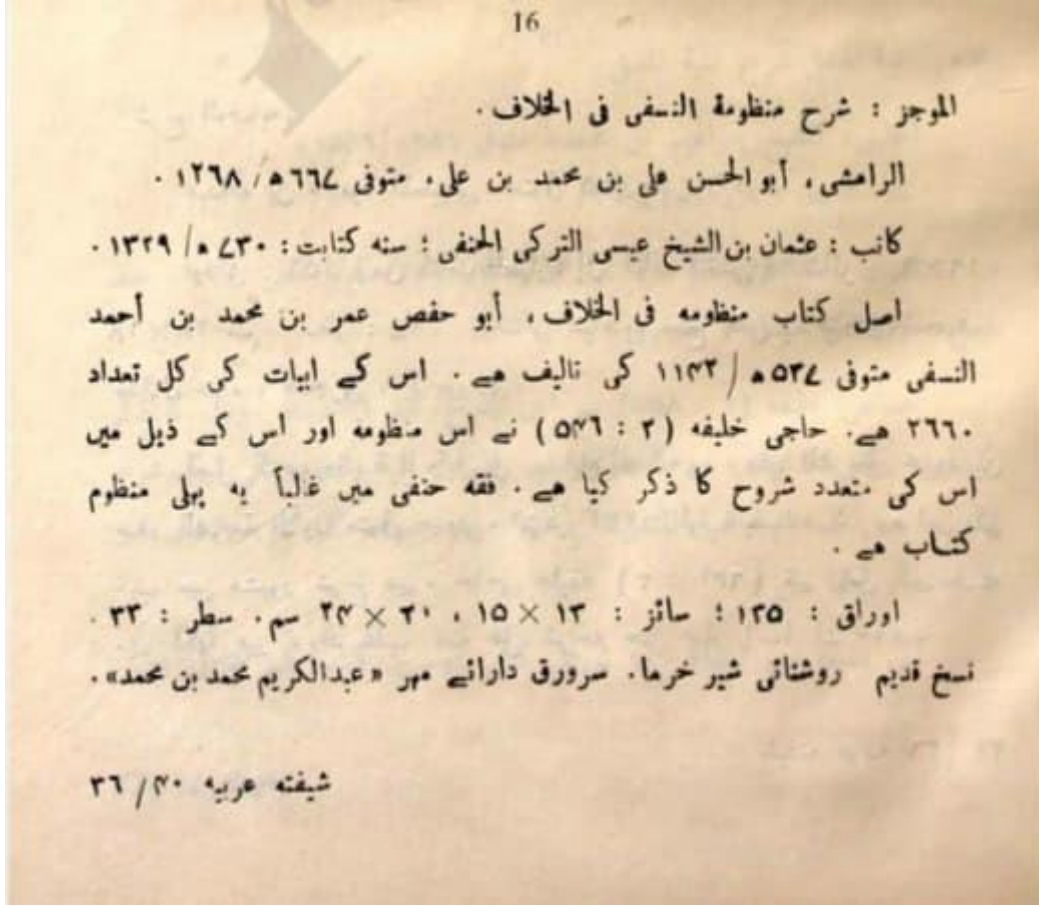 16
الموجز : شرح منظومة النسفی فی الخلاف .
الرامشی، أبو الحسن علی بن محمد بن علی، متوفی ۶۶۷ھ/ ۱۲۶۸ .
کاتب : عثمان بن الشیخ عیسی الترکی الحنفی ؛ سنه کتابت : ۷۳۰ھ/ ۱۳۲۹ .
اصل کتاب منظومه فی الخلاف، أبو حفص عمر بن محمد بن أحمد
النسفی متوفی ۵۳۷ھ / ۱۱۴۲ کی تالیف هے . اس کے ابیات کی کل تعداد
۲۶۶۰ هے. حاجی خلیفه ( ۲ : ۵۴۶ ) نے اس منظومه اور اس کے ذیل میں
اس کی متعدد شروح کا ذکر کیا هے . فقه حنفی میں غالباً یه پهلی منظوم
کتاب هے .
اوراق : ۱۲۵ ؛ سائز : ۱۳ × ۱۵ ، ۲۰ × ۲۴ سم. سطر : ۳۳ .
نسخ قدیم روشنائی شیر خرما. سرورق دارائے مهر «عبدالکریم محمد بن محمد».
شیفته عربیه ۴۰/ ۳۶